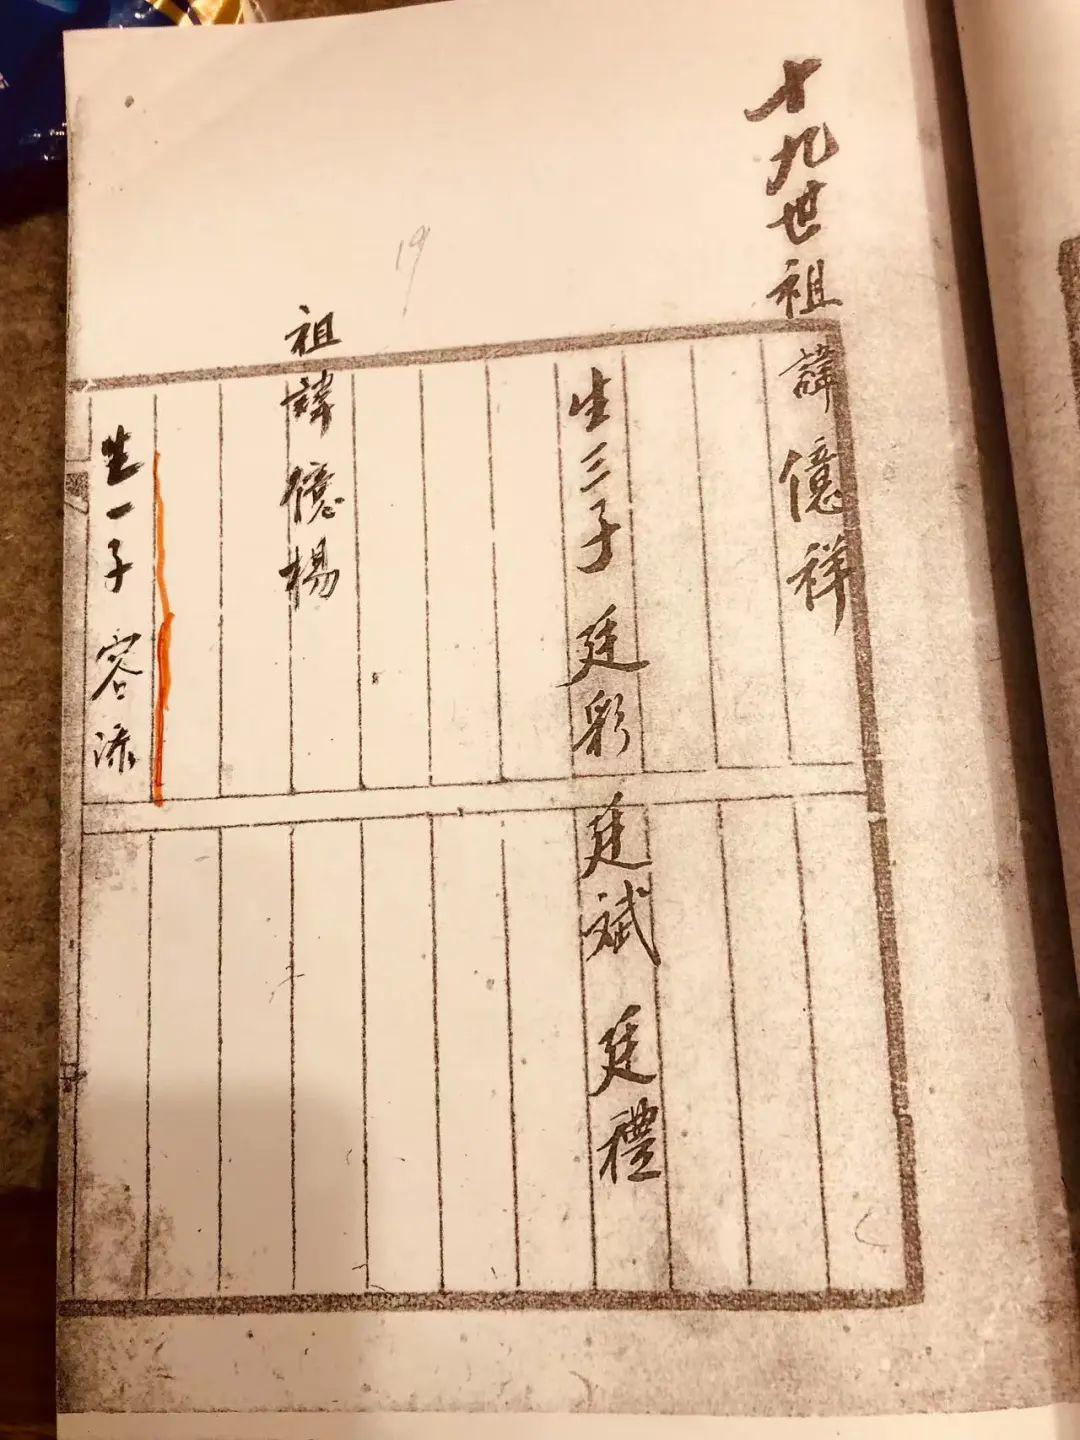 十九世祖諱億祥
生三子廷彩 廷斌 廷禮
19
祖諱億楊
生一子容添